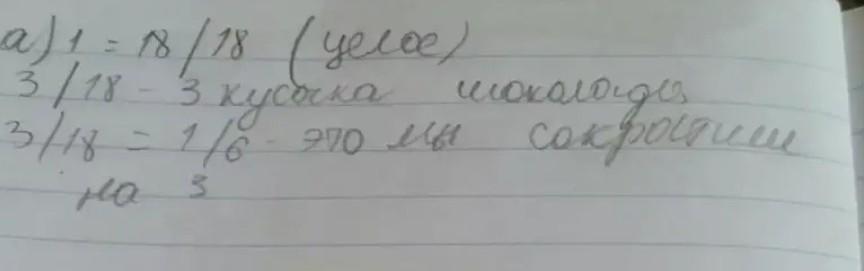 а) 1 = 18/18 (целое)
3/18 - 3 кусочка шоколада
3/18 = 1/6 - это мы сократили
на 3